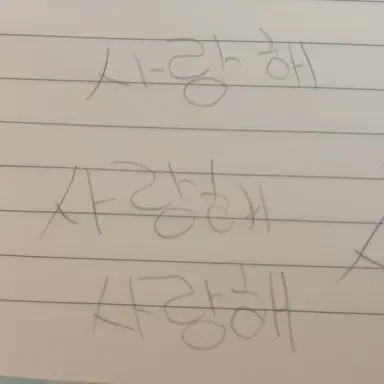 사랑해
사랑해
사랑해